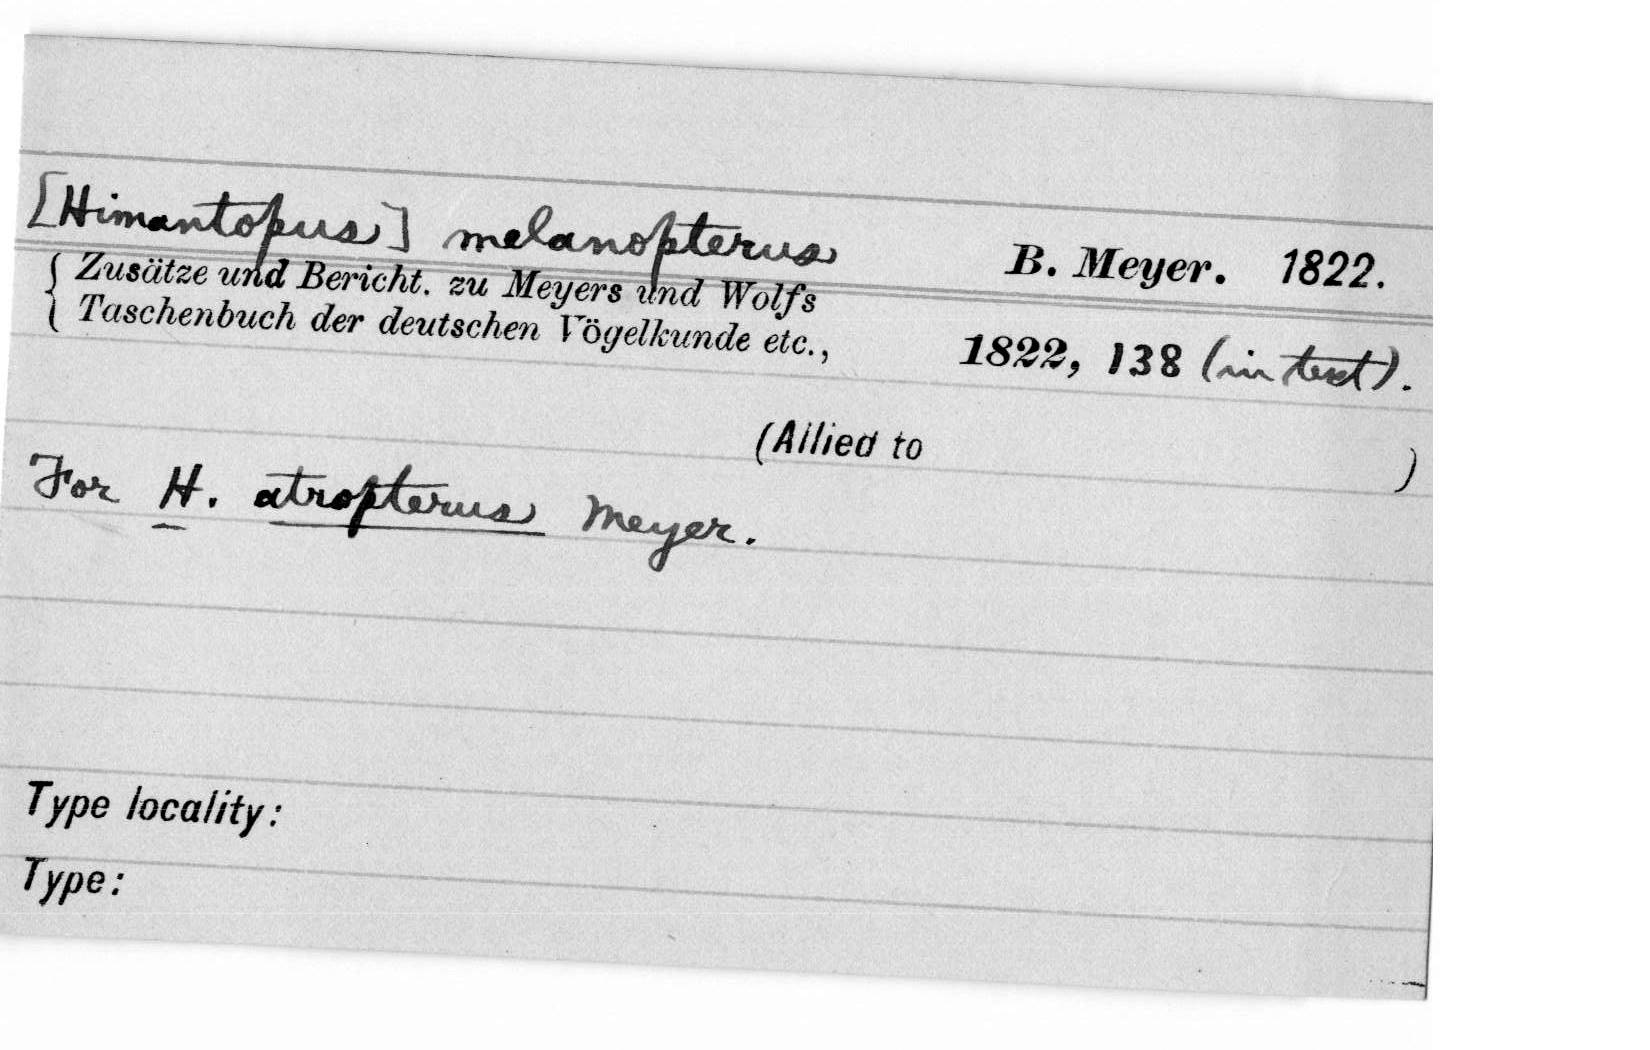 [Himantopus] melanopterus B. Meyer. 1822.
{ Zusätze und Bericht. zu Meyers und Wolfs
{ Taschenbuch der deutschen Vögelkunde etc., 1822, 138 (in text).
(Allied to )
For H. atropterus Meyer.
Type locality:
Type: